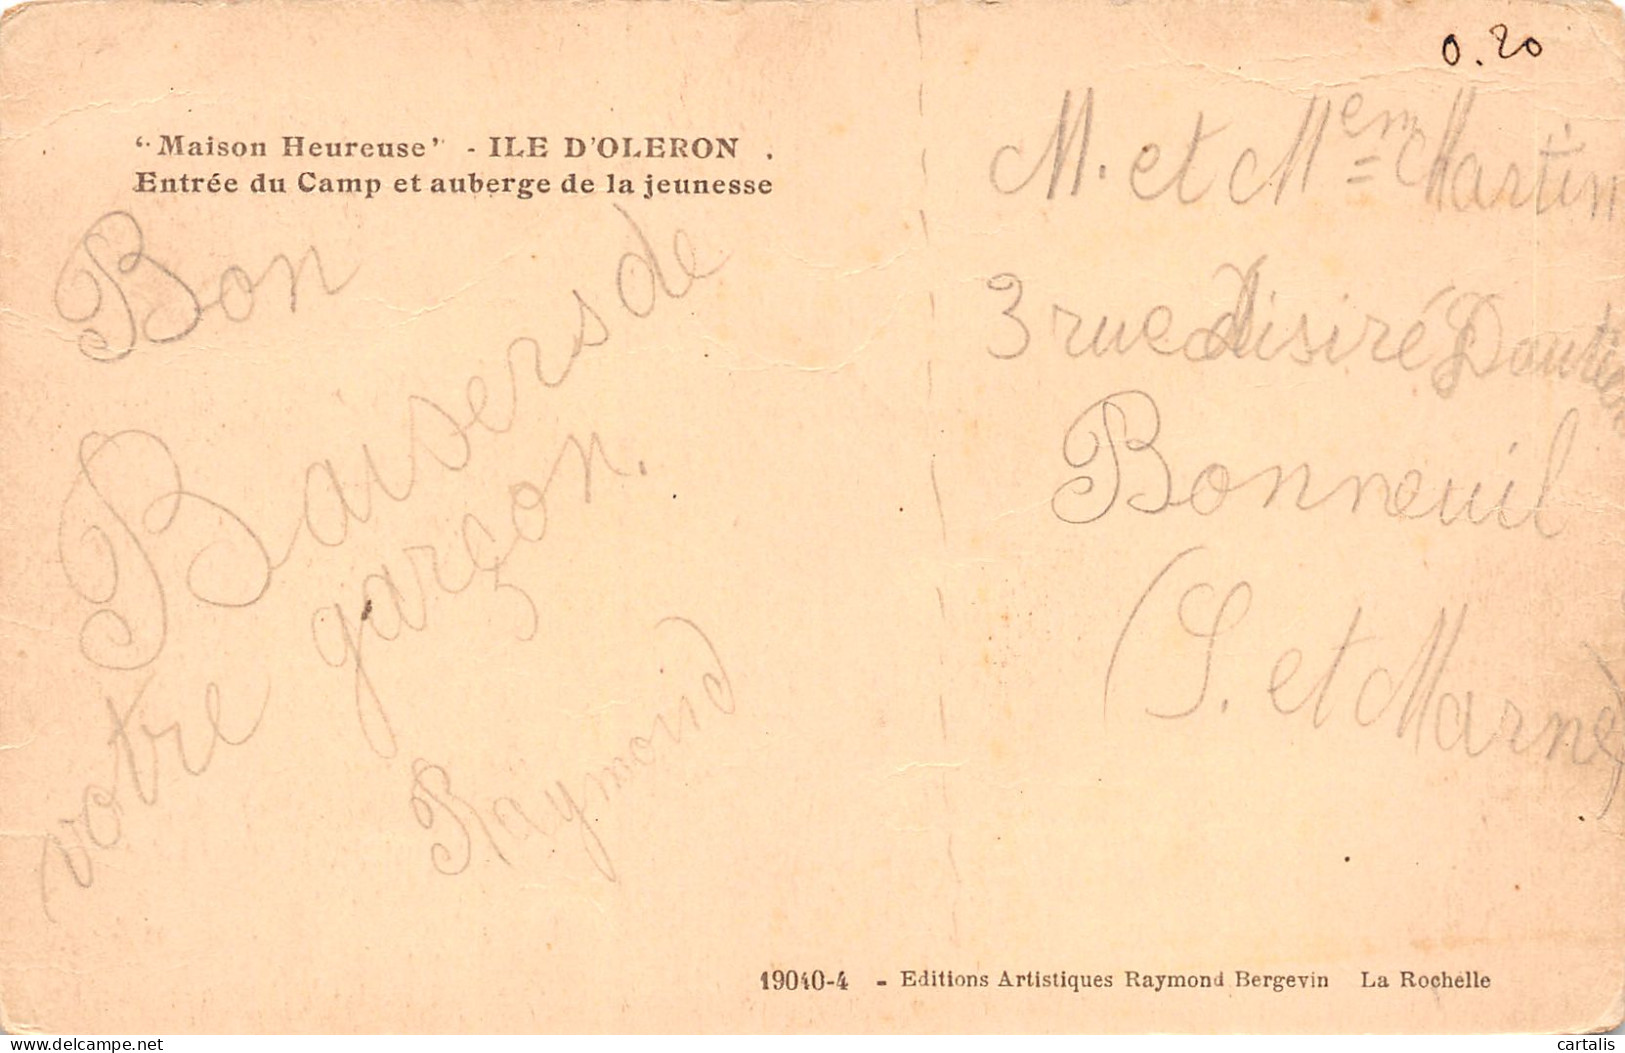 0.20
"Maison Heureuse" - ILE D'OLERON .
Entrée du Camp et auberge de la jeunesse
Bon
Baisers de
votre garçon.
Raymond
M. et Mem Martin
3 rue Disiré
Bonneuil
(S. et Marne)
19040-4 - Editions Artistiques Raymond Bergevin La Rochelle
delcampe.net
cartalis